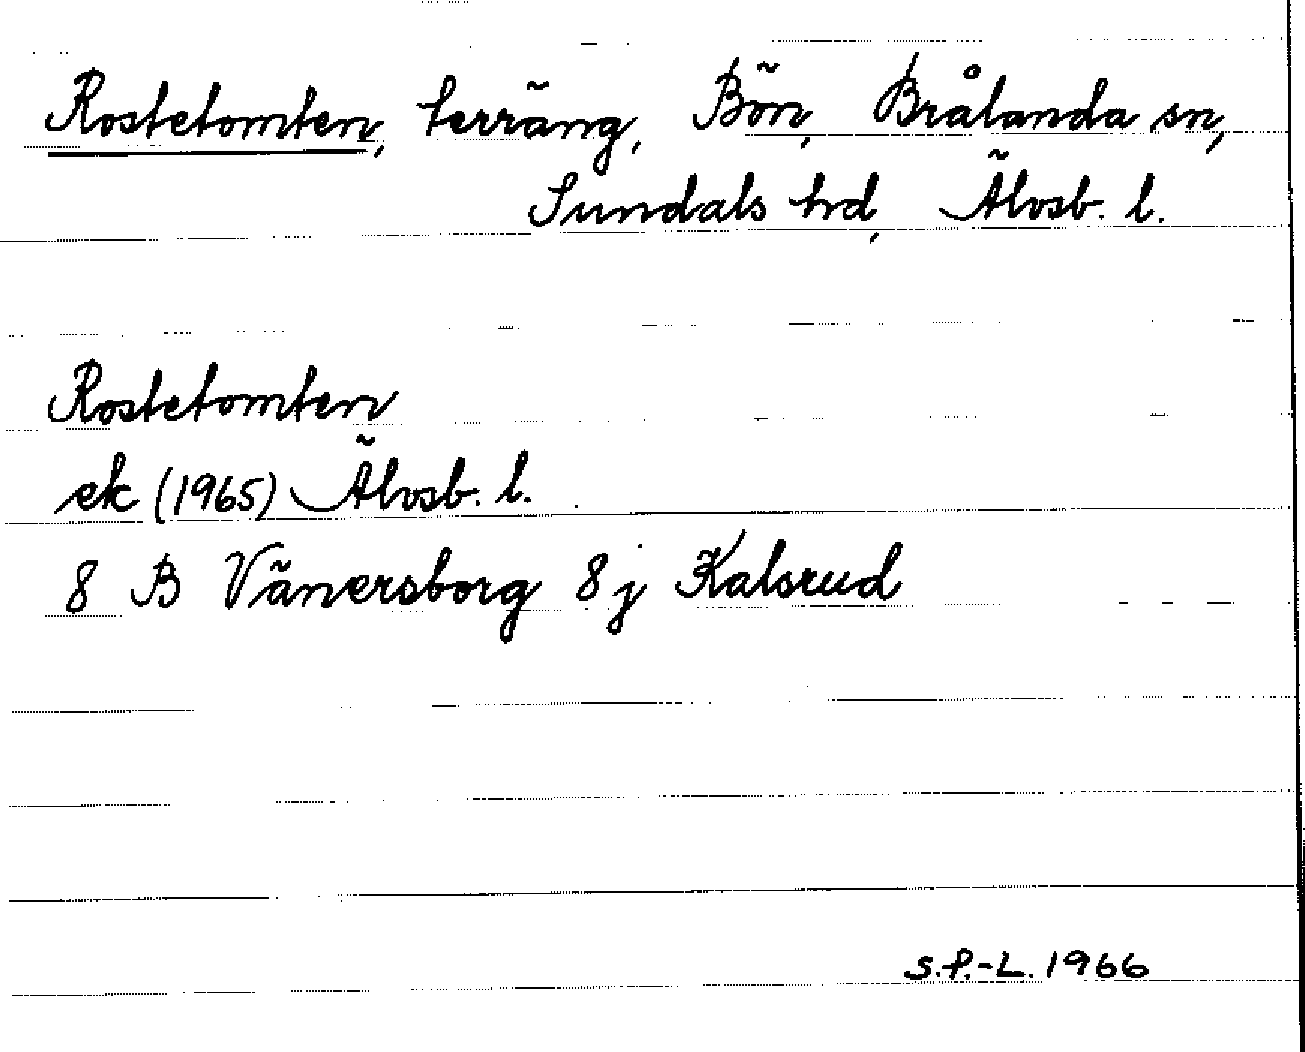 Rostetomten, terräng, Bön, Brålanda sn,
Sundals hd, Älvsb. l.
Rostetomten
ek (1965) Älvsb. l.
8 B Vänersborg 8 j Kalsrud
S.P.-L. 1966